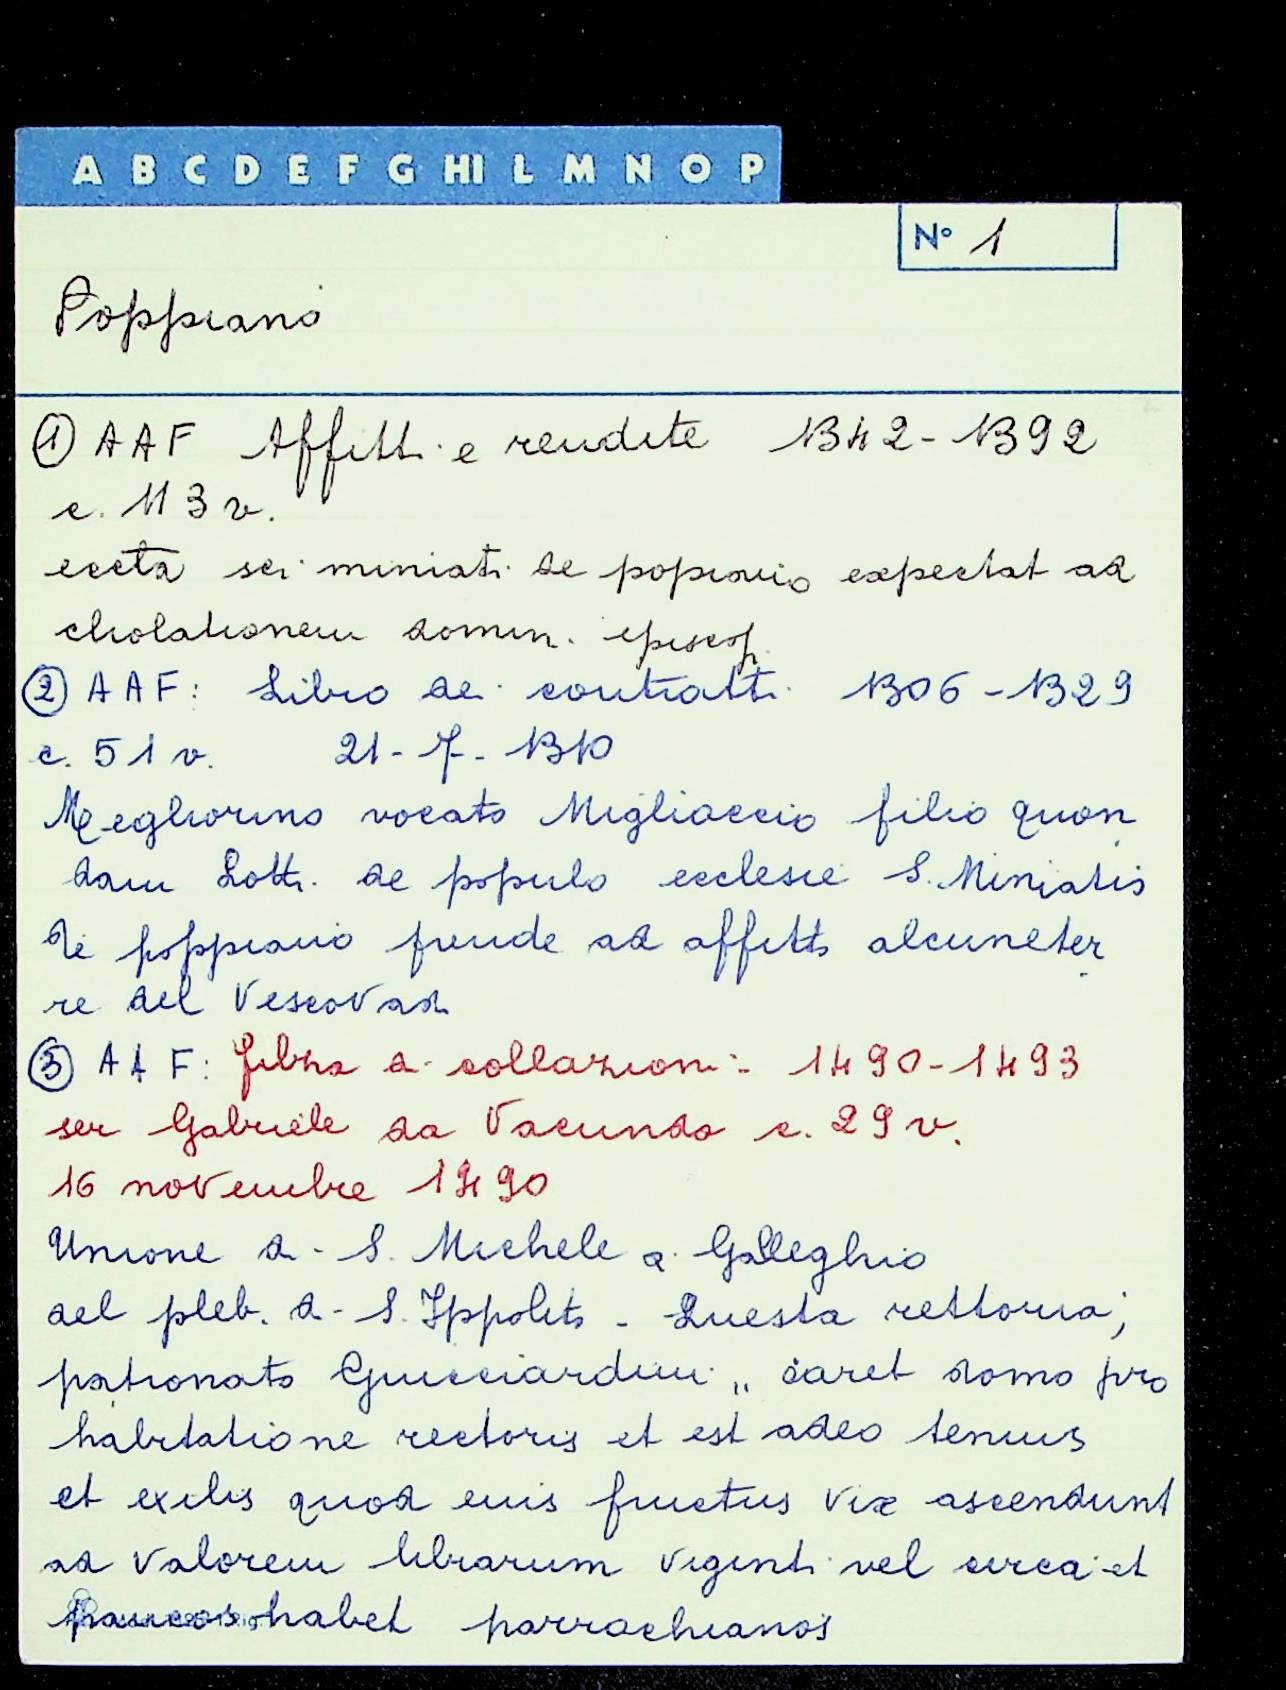 A B C D E F G HI L M N O P
N° 1
Poppiano
① AAF Affitti e rendite 1342-1392
c. 113 v.
eccta sci miniati de popiano expectat ad
cholationem domin. episcop.
② AAF: Libro dei contratti 1306-1329
c. 51 v. 21-7-1310
Megliorino vocato Migliaccio filio quon
dam Lotti de populo ecclesie S. Miniatis
de poppiano prende ad affitto alcune ter
re del Vescovad.
③ AAF: filza di collazioni: 1490-1493
ser Gabriele da Vacundo c. 29 v.
16 novembre 1490
Unione di S. Michele a Galleghio
del pleb. di S. Ippolito - Questa rettoria,
patronato Guicciardini „ caret domo pro
habitatione rectoris et est adeo tenuis
et exilis quod euis fructus vix ascendunt
ad valorem librarum viginti vel circa et
paucos habet parrochianos